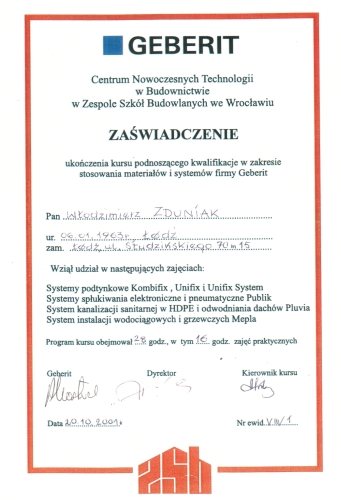 GEBERIT
Centrum Nowoczesnych Technologii
w Budownictwie
w Zespole Szkół Budowlanych we Wrocławiu
ZAŚWIADCZENIE
ukończenia kursu podnoszącego kwalifikacje w zakresie
stosowania materiałów i systemów firmy Geberit
Pan Włodzimierz ZDUNIAK
ur. 06.01.1963r, Łódź
zam. Łódź, ul. Studzińskiego 70 m 15
Wziął udział w następujących zajęciach:
Systemy podtynkowe Kombifix , Unifix i Unifix System
Systemy spłukiwania elektroniczne i pneumatyczne Publik
System kanalizacji sanitarnej w HDPE i odwodniania dachów Pluvia
System instalacji wodociągowych i grzewczych Mepla
Program kursu obejmował 28 godz., w tym 16 godz. zajęć praktycznych
Geberit Dyrektor Kierownik kursu
Data 20.10.2001r Nr ewid. VIII/1
zsb